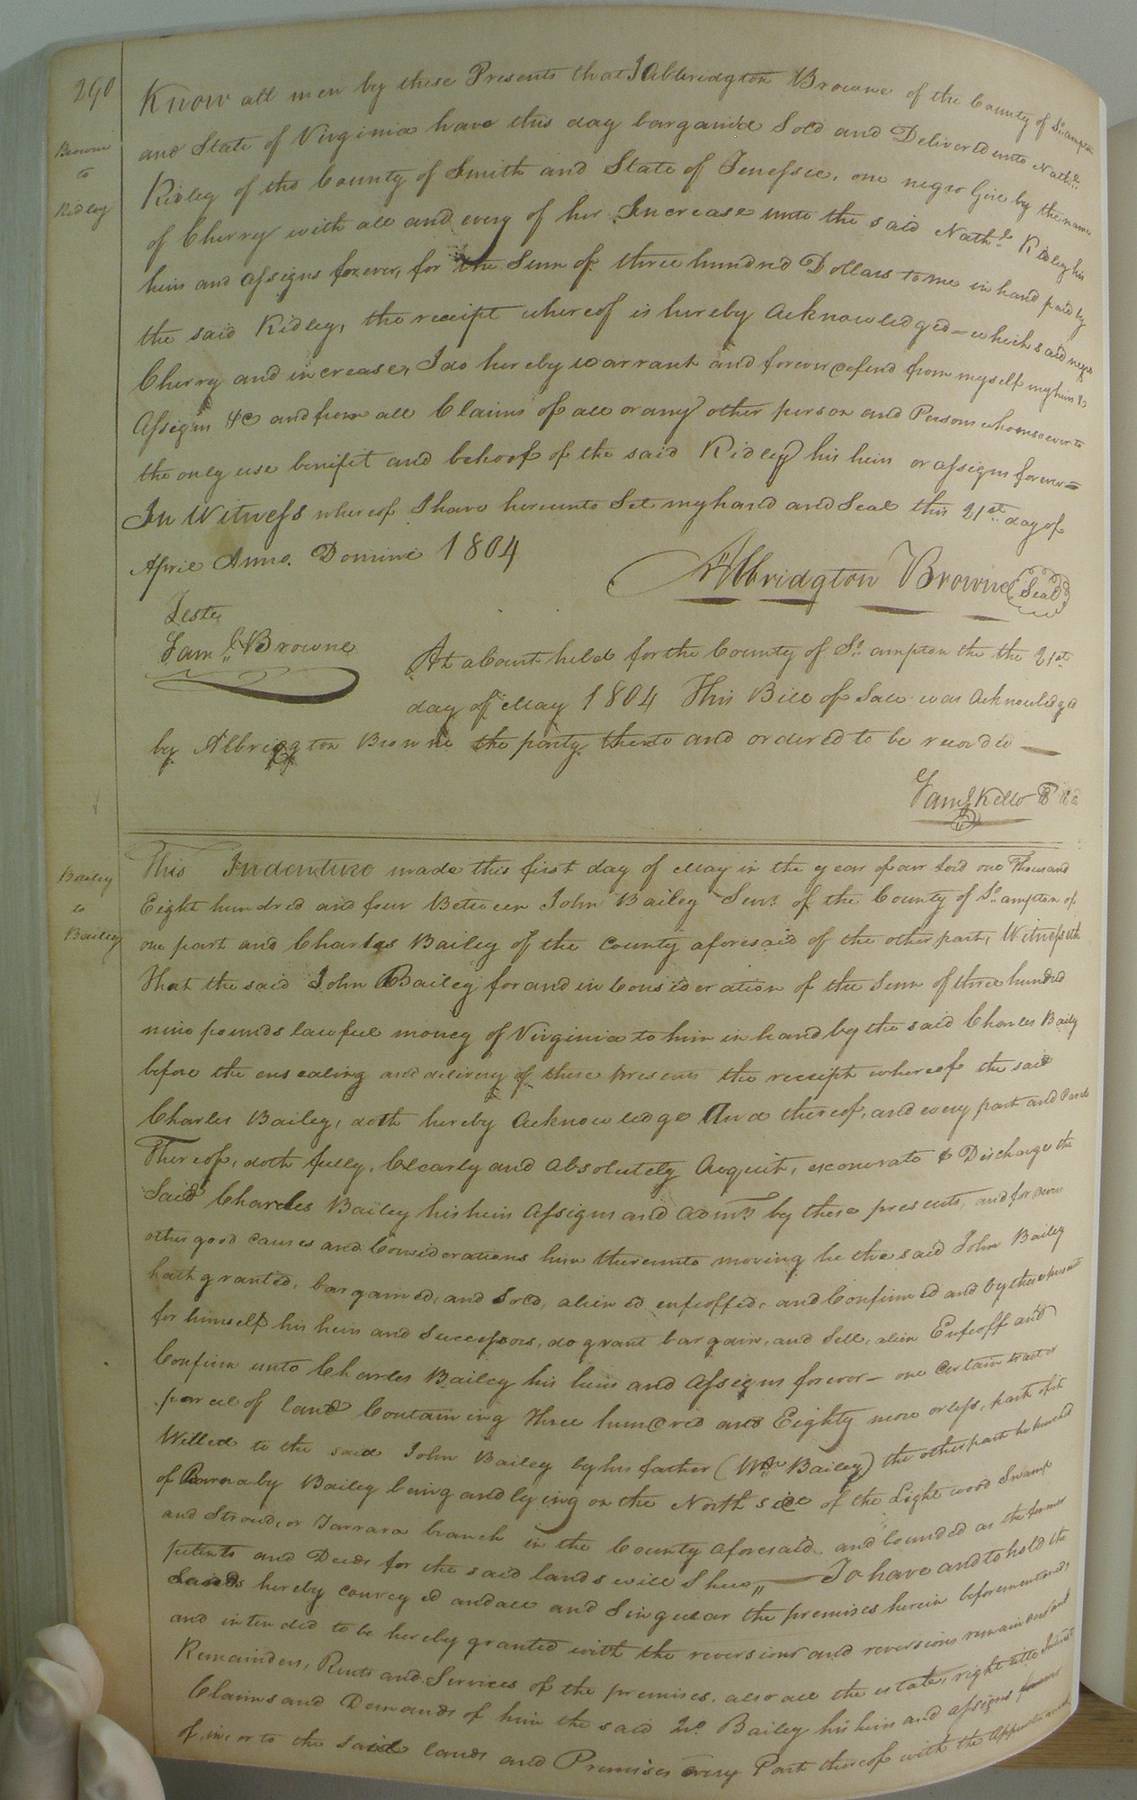 290
Browne
to
Ridley
Know all men by these Presents that I Albridgton Browne of the County of So.ampton
and State of Virginia have this day bargain'd Sold and Deliver'd unto Nathl.
Ridley of the County of Smith and State of Tenessee, one negro Girl by the name
of Cherry with all and every of her Increase unto the said Nathl. Ridley his
heirs and assigns forever, for the Sum of three hundred Dollars to me in hand paid by
the said Ridley, the receipt whereof is hereby Acknowledged — which said negro
Cherry and increase, I do hereby warrant and forever defend from myself my heirs &
Assigns &c and from all Claims of all or any other person and Persons whomsoever to
the only use benifit and behoof of the said Ridley his heirs or assigns forever =
In Witness whereof I have hereunto Set my hand and Seal this 21st day of
April Anno. Domini 1804
Albridgton Browne Seal
Teste
Saml. Browne
At a Court held for the County of So.ampton the the 21st
day of May 1804 This Bill of Sale was Acknowledged
by Albridgton Browne the party thereto and ordered to be recorded —
Saml Kello
Bailey
to
Bailey
This Indenture made this first day of May in the year of our Lord one Thousand
Eight hundred and four Between John Bailey Senr. of the County of So.ampton of
one part and Charles Bailey of the County aforesaid of the other part, Witnesseth
That the said John Bailey for and in Consideration of the Sum of three hundred
nine pounds lawfull money of Virginia to him in hand by the said Charles Baily
before the ensealing and delivery of these presents the receipt whereof the said
Charles Bailey, doth hereby Acknowledge And thereof, and every part and Parcel
Thereof, doth fully, Clearly and Absolutely Acquit, exonerate & Discharge the
Said Charles Bailey his heirs Assigns and Admrs by these presents, and for divers
other good causes and Considerations him thereunto moving he the said John Bailey
hath granted, bargained, and Sold, aliened enfeoffed, and Confirmed and by these presents
for himself his heirs and Successors, do grant bargain, and Sell, alien Enfeoff and
Confirm unto Charles Bailey his heirs and Assigns forever — one Certain tract or
parcel of land Containing Three hundred and Eighty more or less, part of it
Willed to the said John Bailey by his father (Wm Bailey) the other part he
of Barnaby Bailey being and lying on the North side of the Lightwood Swamp
and Stroud, or Tarrara branch in the County aforesaid and bounded as the former
patents and Deeds for the said lands will Shew,, — To have and to hold the
Lands hereby conveyed and all and Singular the premises herein beforementioned,
and intended to be hereby granted with the reversions and reversions remainder and
Remainders, Rents and Services of the premises, also all the estate, right title Interest
Claims and Demands of him the said Jno. Bailey his heirs and assigns forever
of, in, or to the said lands and Premises every Part thereof with the Appurtenances